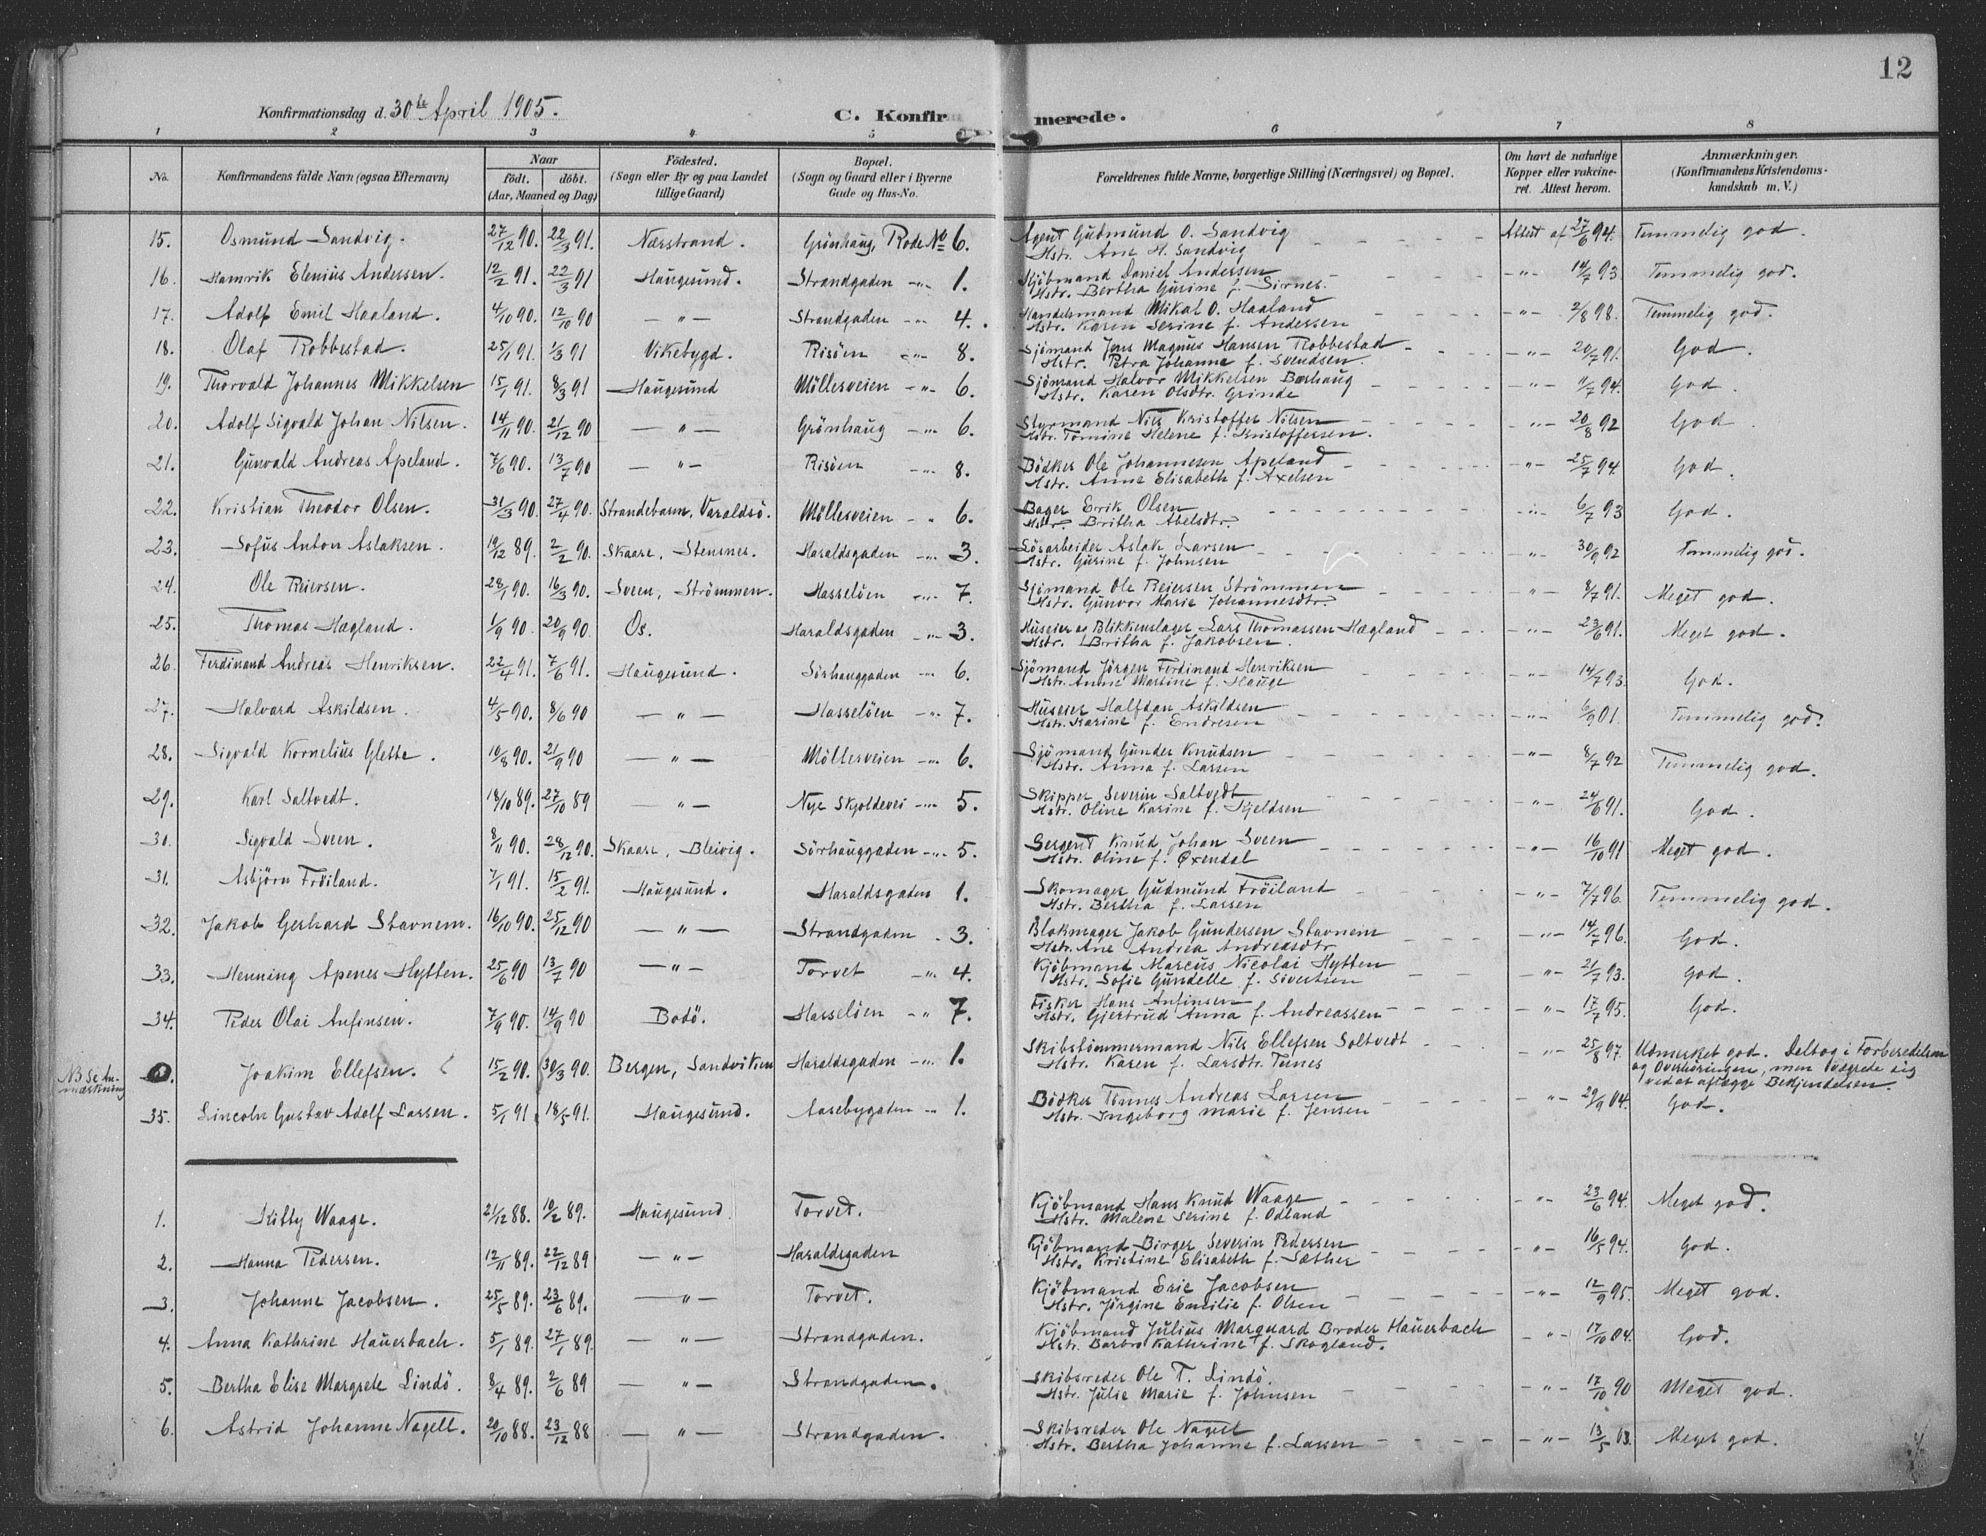 12
Konfirmationsdag d. 30te April 1905. C. Konfirmerede.
1 2 3 4 5 6 7 8
No. Konfirmandens fulde Navn (ogsaa Efternavn) Naar født. døbt. (Aar, Maaned og Dag) Fødested. (Sogn eller By og paa Landet tillige Gaard) Bopæl. (Sogn og Gaard eller i Byerne Gade og Hus-No. Forældrenes fulde Navne, borgerlige Stilling (Næringsvei) og Bopæl. Om havt de naturlige Kopper eller vakcineret. Attest herom. Anmærkninger. (Konfirmandens Kristendomskundskab m. V.)
15. Osmund Sandvig. 27/12 90. 22/3 91. Nærstrand. Grönhaug, Rode No 6. Agent Gudmund O. Sandvig Attest af 27/6 94. Temmelig god.
Hstr. Ane H. Sandvig
16. Hamrik Elenius Andersen. 12/2 91. 22/3 91 Haugesund. Strandgaden -"- 1. Kjöbmand Daniel Andersen -"- 14/7 93 Temmelig god.
Hstr. Bertha Gurine f. Sirnes.
17. Adolf Emil Haaland. 4/10 90. 12/10 90 -"- Strandgaden -"- 4. Handelsmand Mikal O. Haaland -"- 2/8 98. Temmelig god.
Hstr. Karen Serine f. Andersen
18. Olaf Robbestad. 25/1 91. 1/3 91 Vikebygd. Risöen -"- 8. Sjömand Jens Magnus Hansen Robbestad -"- 20/7 91. God.
Hstr. Petra Johanne f. Svendsen.
19. Thorvald Johannes Mikkelsen 15/1 91. 8/3 91 Haugesund Möllesveien -"- 6. Sjömand Halvor Mikkelsen Bærhaug -"- 11/7 94. God.
Hstr. Karen Olsdtr. Grinde
20. Adolf Sigvald Johan Nilsen. 14/11 90. 21/12 90 -"- Grönhaug -"- 6. Styrmand Nils Kristoffer Nilsen -"- 20/8 92 God
Hstr. Tomine Helene f. Kristoffersen.
21. Gunvald Andreas Apeland. 7/6 90. 13/7 90 -"- Risöen -"- 8. Bödker Ole Johannesen Apeland -"- 25/7 94. God.
Hstr. Anne Elisabeth f. Axelsen
22. Kristian Theodor Olsen. 31/3 90. 27/4 90. Strandebarm, Varaldsö. Möllesveien -"- 6. Bager Erik Olsen -"- 6/7 93 God.
Hstr. Britha Abelsdtr.
23. Sofus Anton Aslaksen. 19/12 89. 2/2 90. Skaare, Stensnes. Haraldsgaden -"- 3. Lösarbeider Aslak Larsen -"- 30/9 92 Temmelig god.
Hstr. Gurine f. Johnsen
24. Ole Reiersen. 28/1 90. 16/3 90. Sveen, Strömmen. Hasselöen -"- 7. Sjömand Ole Reiersen Strömmen -"- 8/7 91. Meget god.
Hstr. Gunvor Marie Johannesdtr.
25. Thomas Hægland. 1/9 90. 20/9 90. Os. Haraldsgaden -"- 3. Huseier og Blikkenslager Lars Thomassen Hægland -"- 23/6 91. Meget god.
Hstr. Britha f. Jakobsen.
26. Ferdinand Andreas Henriksen. 22/4 91. 7/6 91. Haugesund. Sörhauggaden -"- 6. Sjömand Jörgen Ferdinand Henriksen -"- 14/7 93. God.
Hstr. Anne Martine f. Hauge
27. Halvard Askildsen. 4/5 90. 8/6 90 -"- Hasselöen -"- 7. Huseier Halfdan Askildsen -"- 6/9 01. Temmelig god.
Hstr. Karine f. Endresen
28. Sigvald Kornelius Glette. 10/8 90. 21/9 90 -"- Möllesveien -"- 6. Sjömand Gunder Knudsen -"- 8/7 92 Temmelig god.
Hstr. Anna f. Larsen
29. Karl Saltvedt. 18/10 89. 27/10 89 -"- Nye Skjoldevei -"- 5. Skipper Severin Saltvedt -"- 24/6 91. God.
Hstr. Oline Karine f. Kjeldsen
30. Sigvald Sveen. 8/11 90. 28/12 90. Skaare, Bleivig. Sörhauggaden -"- 5. Sergent Knud Johan Sveen -"- 16/10 91 Meget god.
Hstr. Oline f. Oxendal
31. Asbjörn Fröiland. 7/1 91. 15/2 91. Haugesund. Haraldsgaden 1. Skomager Gudmund Fröiland -"- 7/7 96. Temmelig god.
Hstr. Bertha f. Larsen
32. Jakob Gerhard Stavnem. 16/10 90. 25/12 90 -"- Strandgaden - 3. Blokmager Jakob Gundersen Stavnem -"- 14/7 96. God.
Hstr. Ane Andrea Andreasdtr
33. Henning Apenes Hytten. 25/6 90 13/7 90 -"- Torvet -"- 4. Kjöbmand Marcus Nicolai Hytten -"- 21/7 93. God.
Hstr. Sofie Gundelle f. Sivertsen
34. Peder Olai Anfinsen. 7/9 90. 14/9 90 Bodö. Hasselöen -"- 7. Fisker Hans Anfinsen -"- 17/7 95. God.
Hstr. Gjertrud Anna f. Andreassen
NB Se Anmærkning Joakim Ellefsen. 15/2 90. 30/3 90. Bergen, Sandviken Haraldsgaden -"- 1. Skibstömmermand Nils Ellefsen Saltvedt -"- 25/8 97. Udmerket god. Deltog i Forberedelsen og Overhöringen, men vægrede sig ved at aflægge Bekjendelsen.
Hstr. Karen f. Larsdtr. Tunes
35. Lincoln Gustav Adolf Larsen. 5/1 91 18/5 91. Haugesund. Aasebygaden -"- 1. Bödker Tönnes Andreas Larsen -"- 29/9 04. God.
Hstr. Ingeborg Marie f. Jensen
1. Kitty Waage. 21/12 88. 10/2 89. Haugesund. Torvet. Kjöbmand Hans Knud Waage -"- 23/6 94. Meget god.
Hstr. Malene Serine f. Odland
2. Hanna Pedersen. 12/11 89. 22/12 89 -"- Haraldsgaden Kjöbmand Birger Severin Pedersen -"- 16/5 94. God.
Hstr. Kristine Elisabeth f. Sæther
3. Johanne Jacobsen. 25/5 89. 23/6 89. -"- Torvet. Kjöbmand Eric Jacobsen -"- 12/9 95. Meget god.
Hstr. Jörgine Emilie f. Olsen
4. Anna Kathrine Hauerbach. 5/1 89. 27/1 89. -"- Strandgaden. Kjöbmand Julius Marquard Broder Hauerbach -"- 17/10 04. God.
Hstr. Barbro Kathrine f. Skogland.
5. Bertha Elise Margrete Lindö. 8/4 89. 2/6 89 -"- Strandgaden. Skibsreder Ole T. Lindö. -"- 17/10 90 Meget god.
Hstr. Julie Marie f. Johnsen
6. Astrid Johanne Nagell. 20/10 88. 23/12 88 -"- Strandgaden. Skibsreder Ole Nagell -"- 13/5 03. Meget god.
Hstr. Bertha Johanne f. Larsen